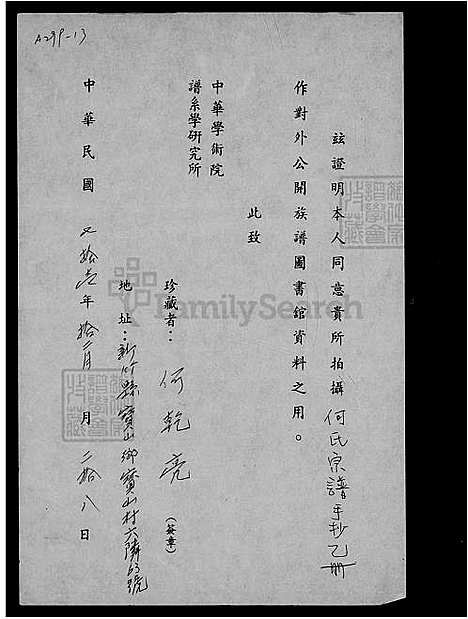 A299-13
茲證明本人同意貴所拍攝何氏宗譜手抄乙冊
作對外公開族譜圖書館資料之用。
此致
中華學術院
譜系學研究所
珍藏者：何乾亮（簽章）
地址：新竹縣寶山鄉寶山村六鄰63號
中華民國 年拾二月 月二拾八日
FamilySearch